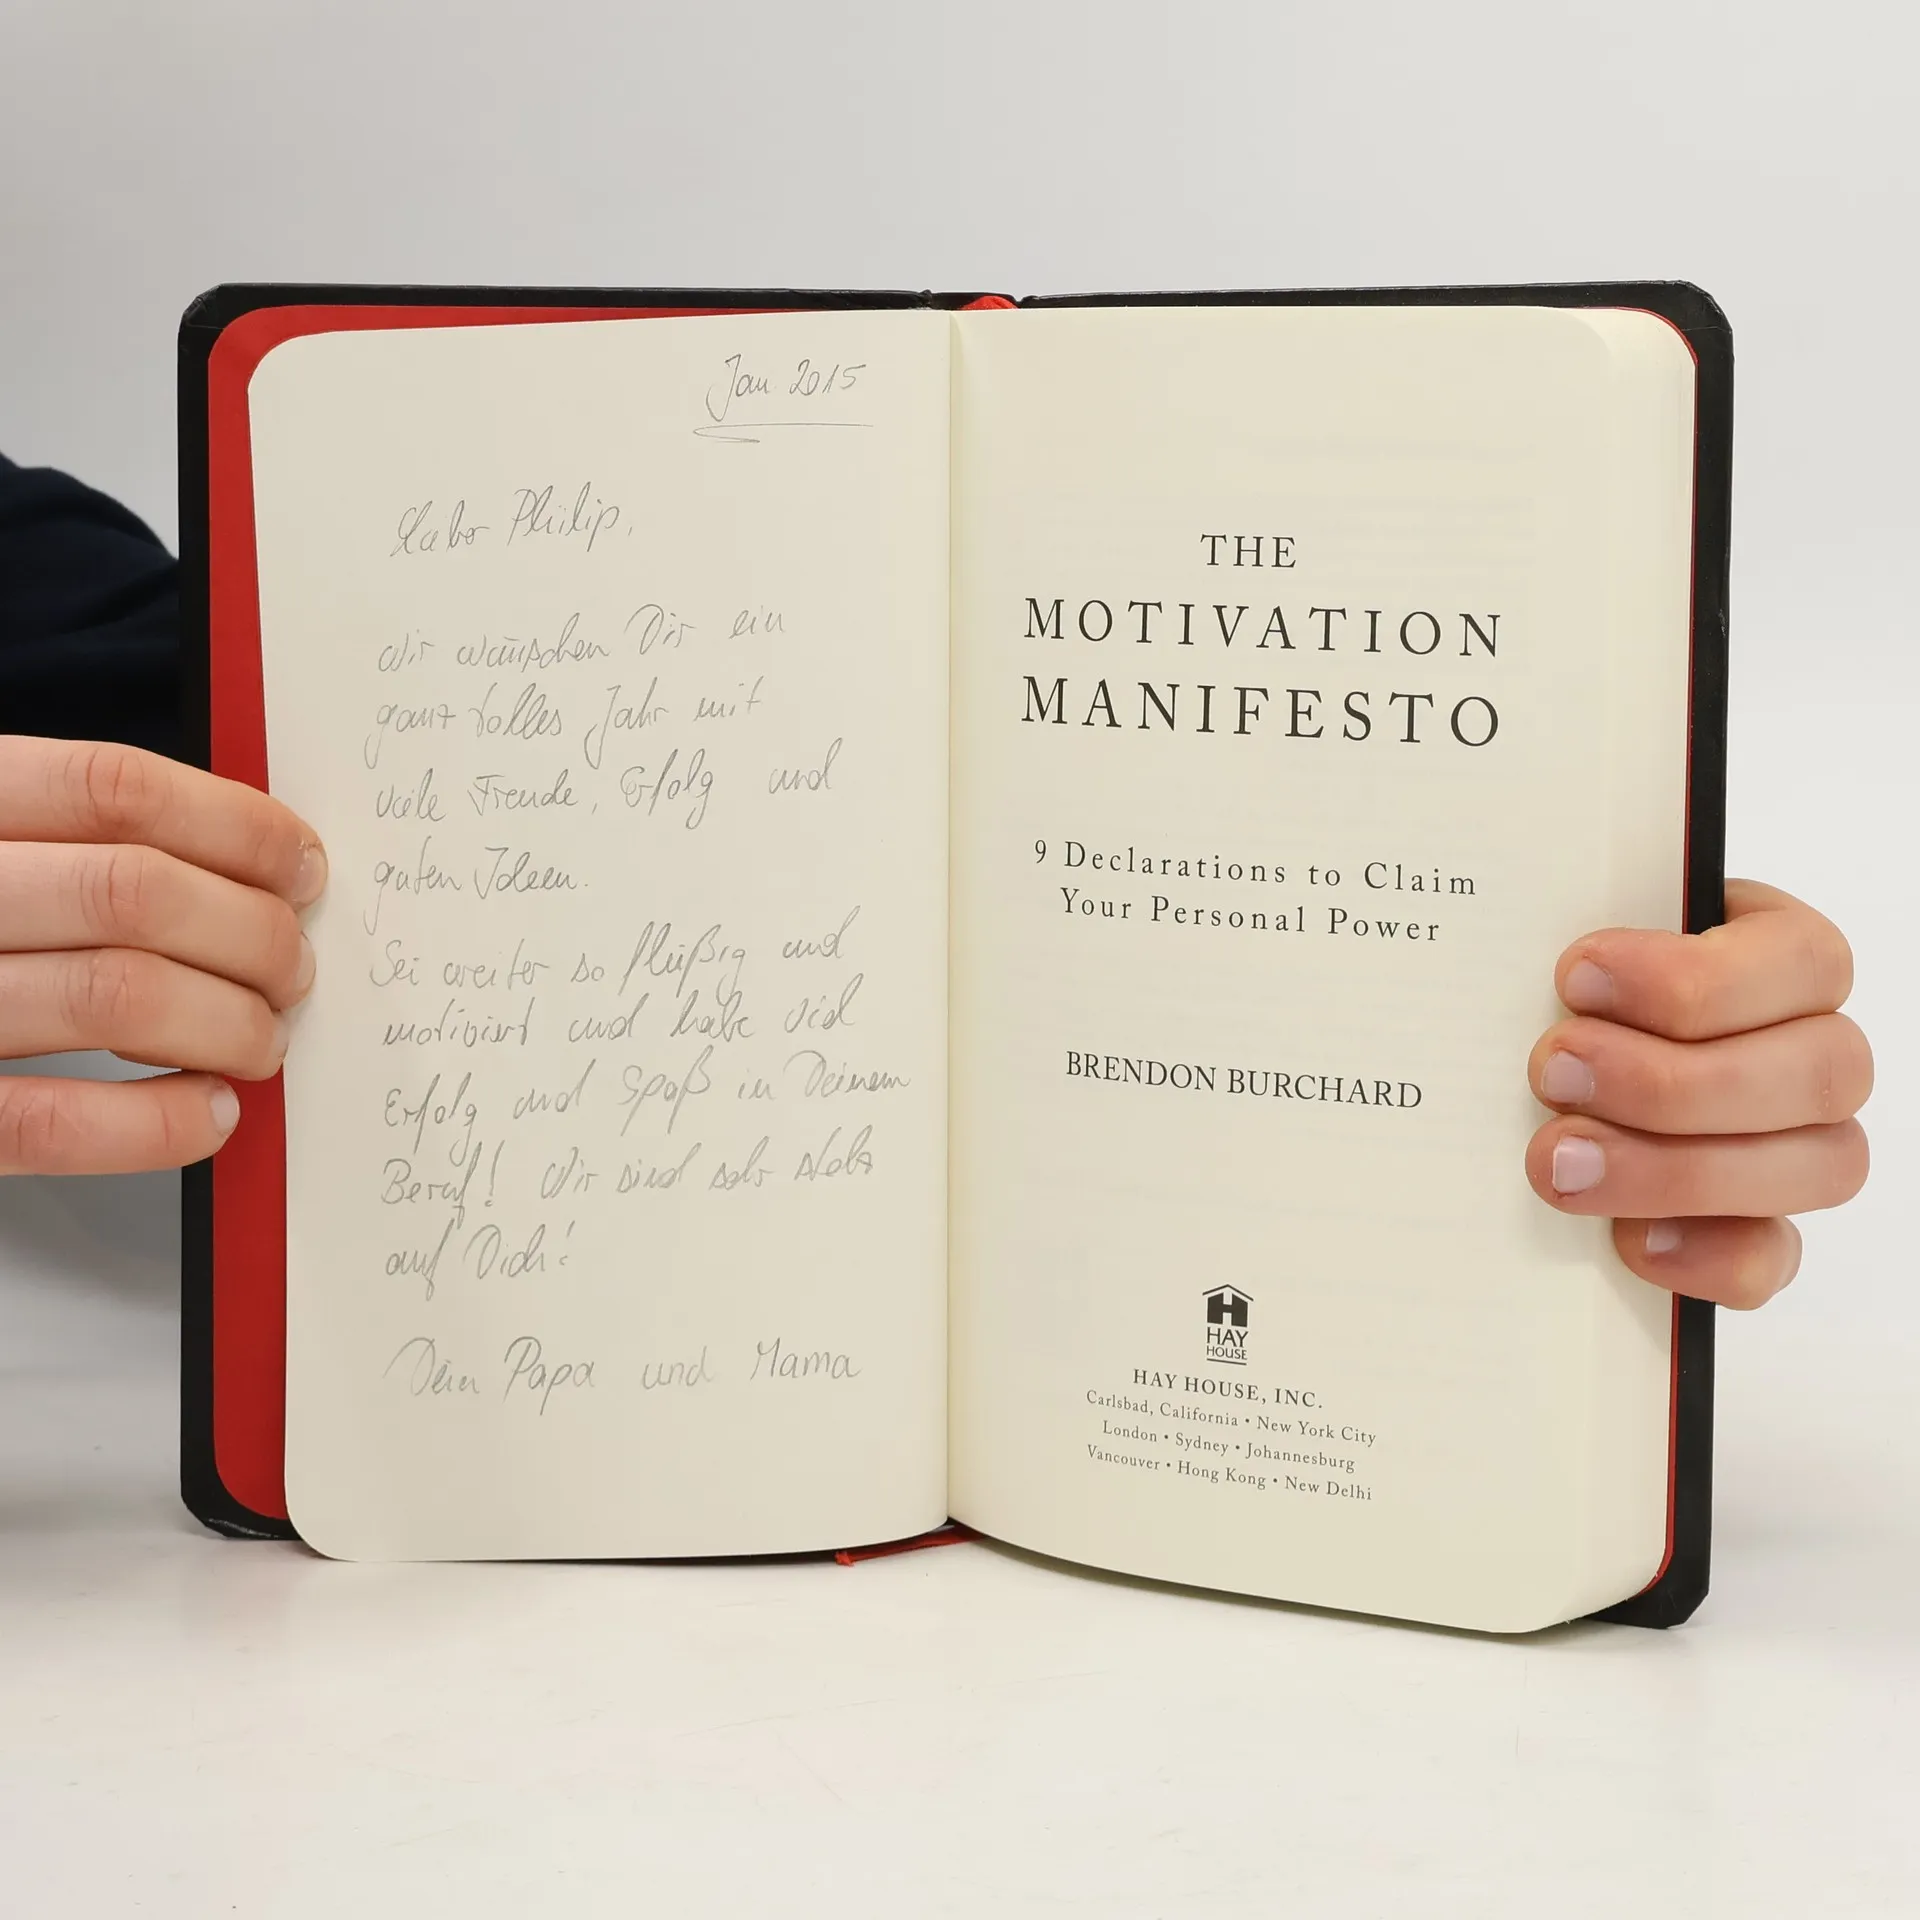 Jan. 2015
Lieber Philip,
wir wünschen Dir ein
ganz tolles Jahr mit
viele Freude, Erfolg und
guten Ideen.
Sei weiter so fleißig und
motiviert und habe viel
Erfolg und Spaß in Deinem
Beruf! Wir sind sehr stolz
auf Dich!
Dein Papa und Mama
THE
MOTIVATION
MANIFESTO
9 Declarations to Claim
Your Personal Power
BRENDON BURCHARD
H
HAY
HOUSE
HAY HOUSE, INC.
Carlsbad, California • New York City
London • Sydney • Johannesburg
Vancouver • Hong Kong • New Delhi